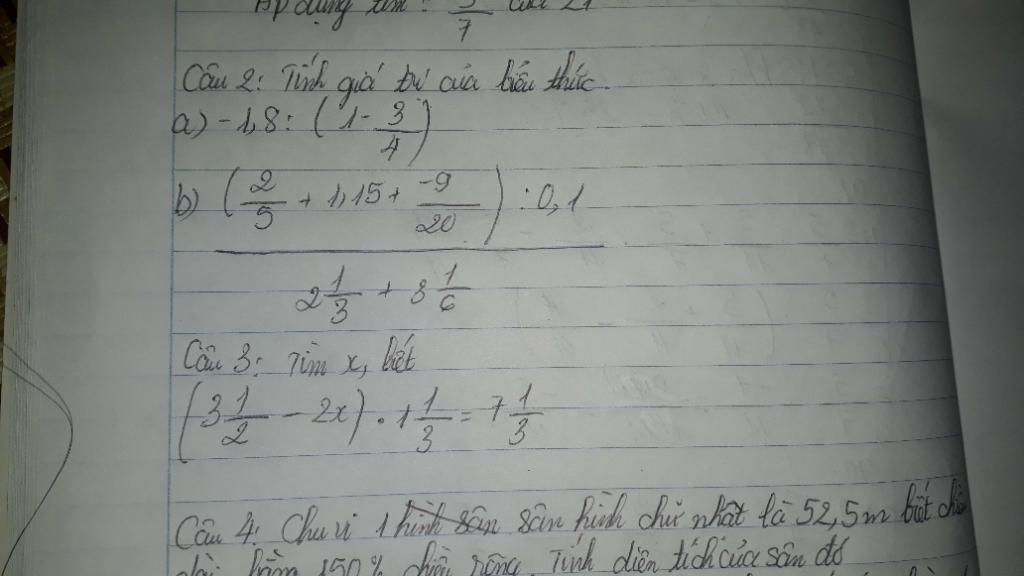 Áp dụng tìm: 5/7 của 21
Câu 2: Tính giá trị của biểu thức.
a) -1,8 : (1 - 3/4)
b) (2/5 + 1,15 + -9/20) : 0,1
2 1/3 + 3 1/6
Câu 3: Tìm x, biết
(3 1/2 - 2x) . 1 1/3 = 7 1/3
Câu 4: Chu vi 1 hình sân sân hình chữ nhật là 52,5m biết chiều
dài bằng 150% chiều rộng. Tính diện tích của sân đó